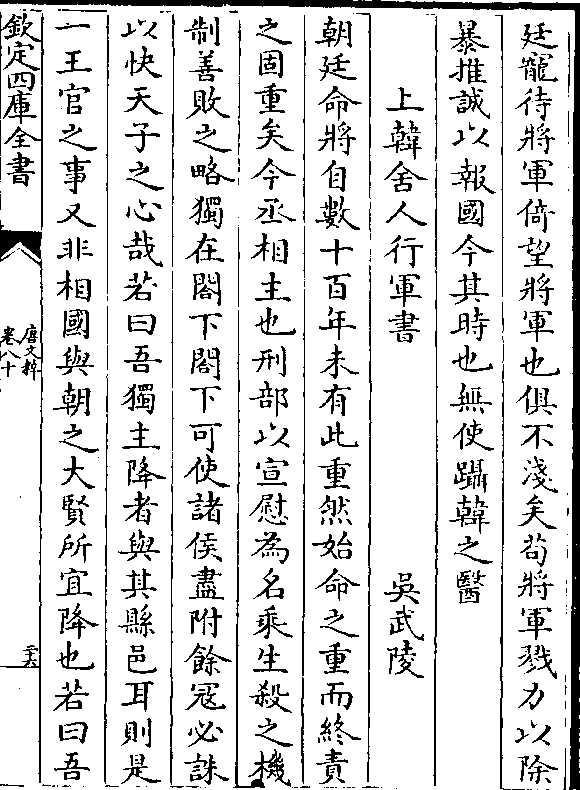 廷寵待將軍倚望將軍也俱不淺矣苟將軍戮力以除
暴推誠以報國今其時也無使躡韓之醫
上韓舍人行軍書 吳武陵
朝廷命將自數十百年未有此重然始命之重而終責
之固重矣今丞相主也刑部以宣慰為名乘生殺之機
制善敗之略獨在閣下閣下可使諸侯盡附餘冦必誅
以快天子之心哉若曰吾獨主降者與其縣邑耳則是
一王官之事又非相國與朝之大賢所宜降也若曰吾
欽定四庫全書
唐文粹
卷八十
二十六